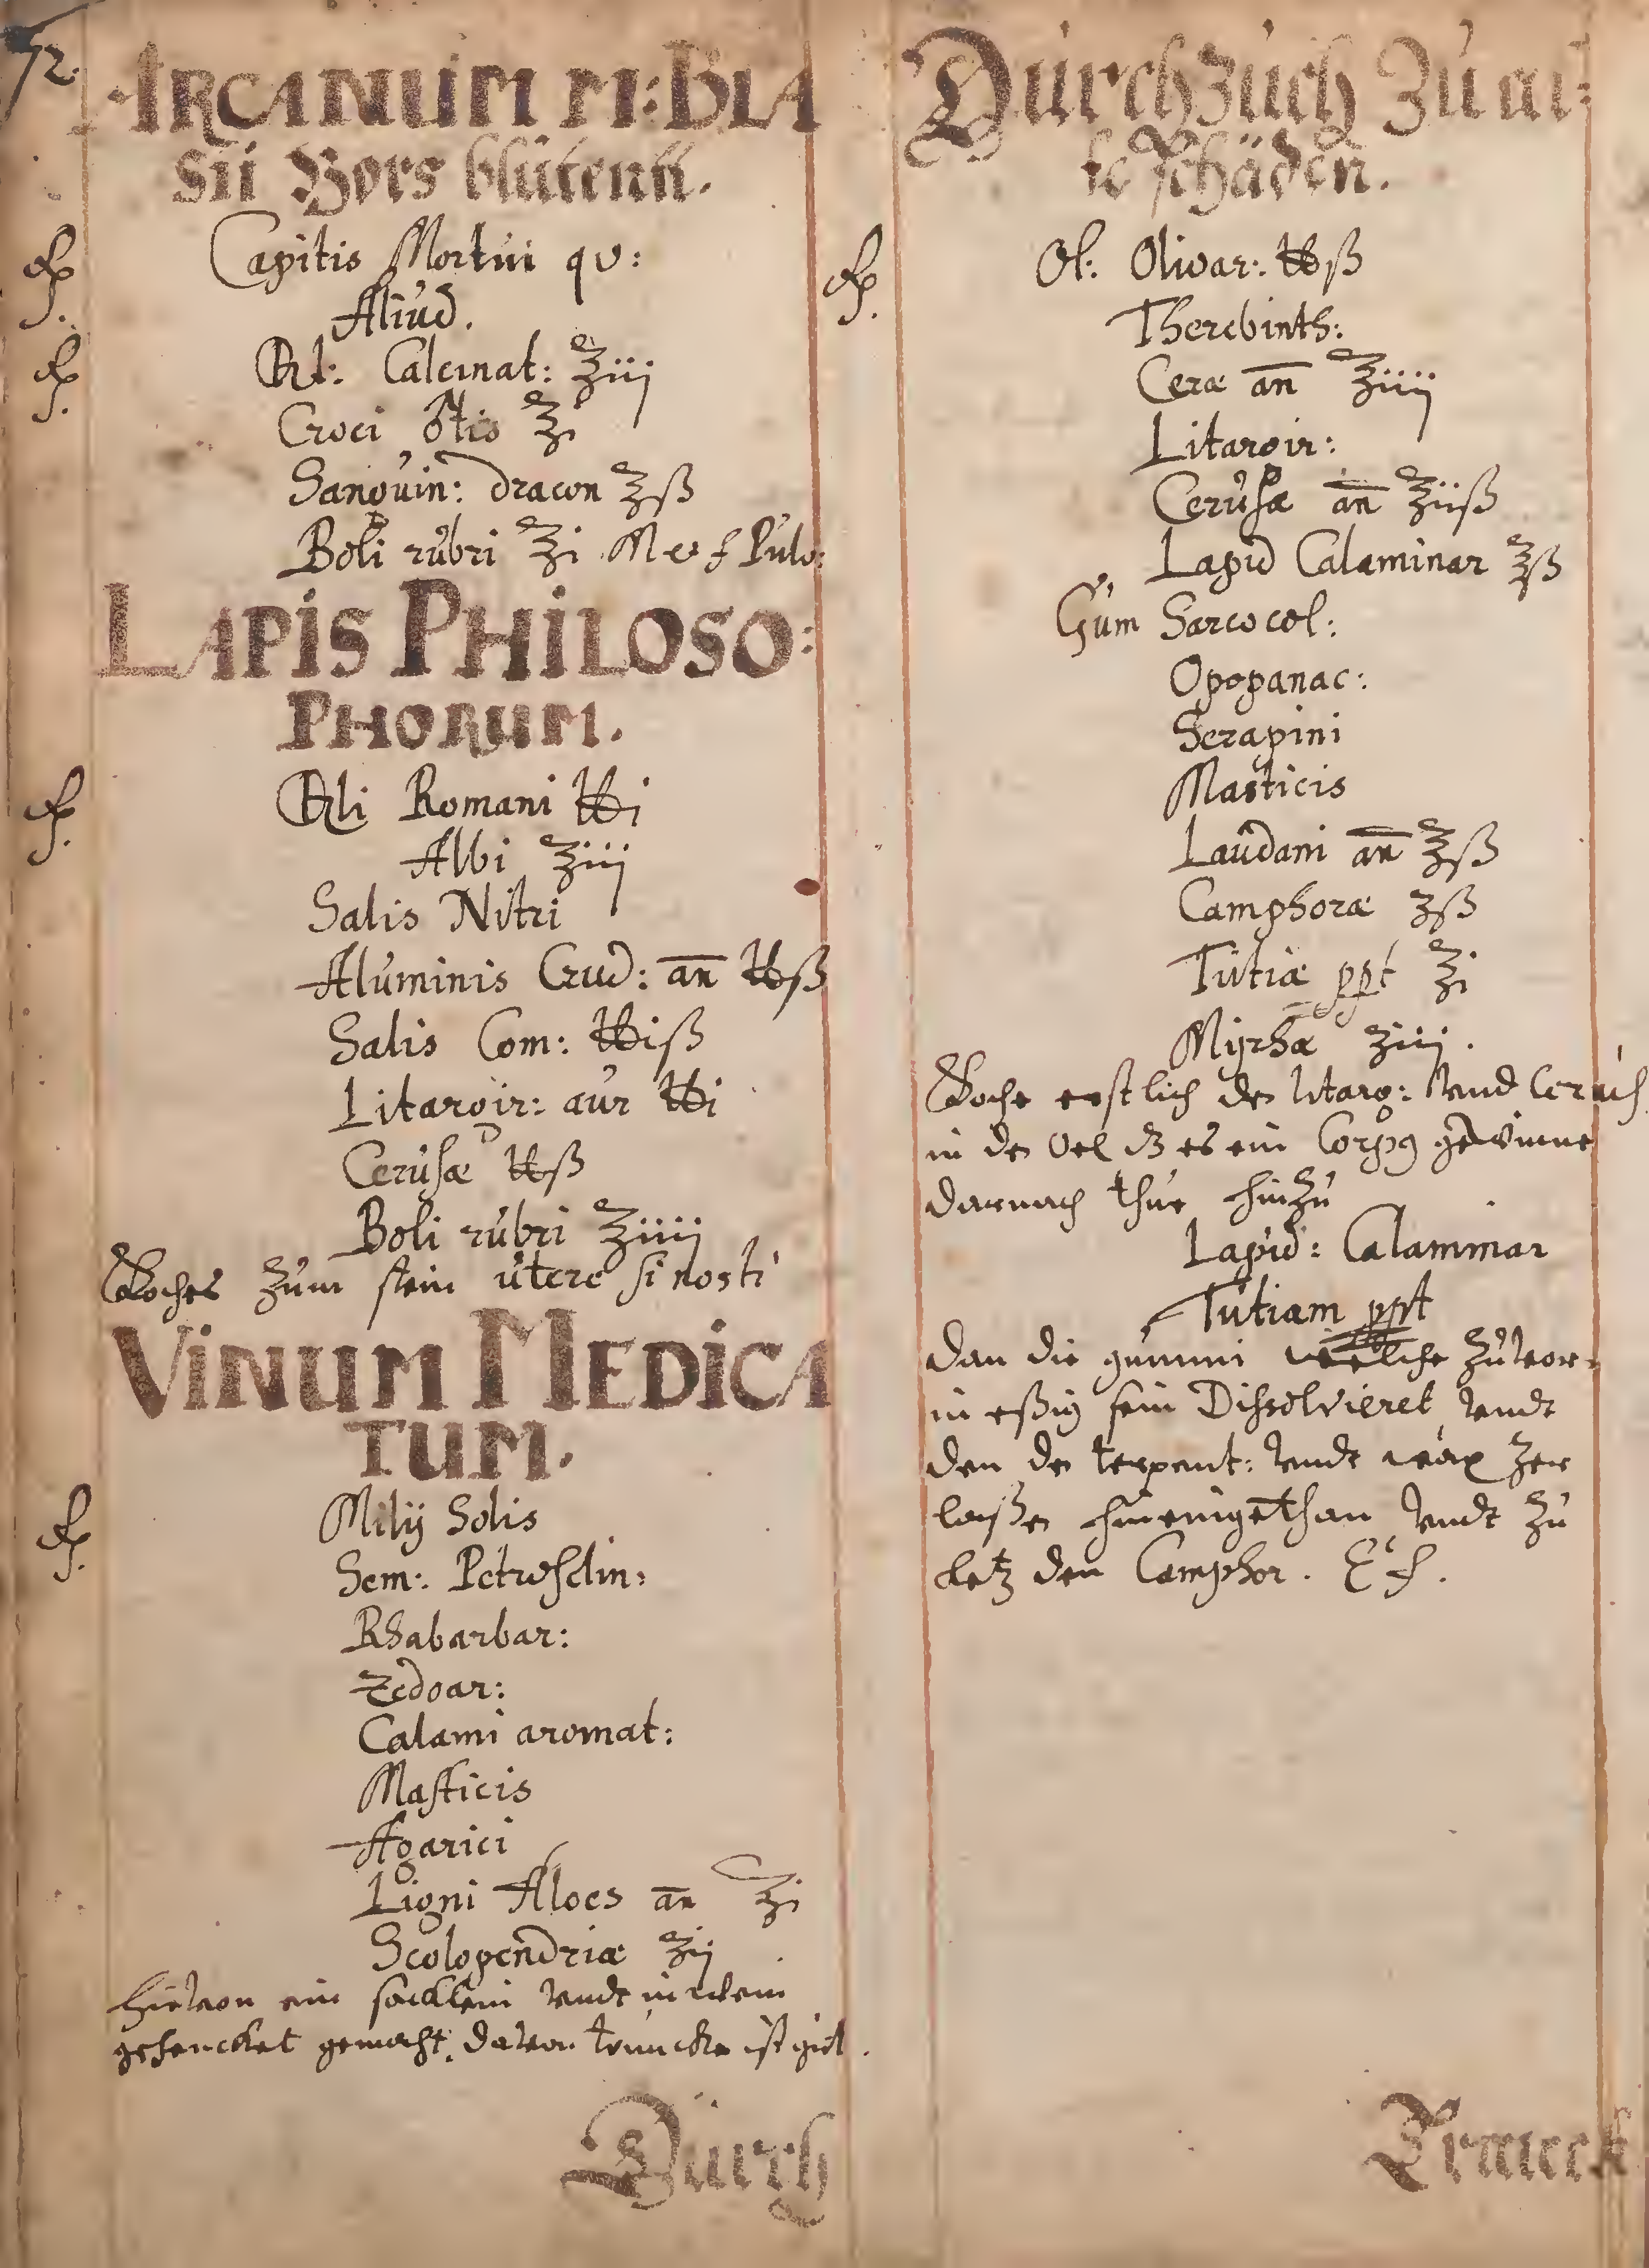 72.
ARCANUM M: BLA
sii Vors blüten.
℞. Capitis Mortui qv:
Aliud.
℞. Calcinat: ℥iij
Croci ♂tis ℥i
Sanguin: dracon ℥ß
Boli rubri ℥i M et f Pulv:
LAPIS PHILOSO:
PHORUM.
℞. Romani ℔i
Albi ℥iij
Salis Nitri
Aluminis Crud: an̄ ℔ß
Salis Com: ℔iß
Litargir: aur ℔i
Cerusæ ℔ß
Boli rubri ℥iiij
Koches zum stein utere si nosti
VINUM MEDICA
TUM.
℞. Milij Solis
Sem: Petroselin:
Rhabarbar:
Zedoar:
Calami aromat:
Masticis
Agarici
Ligni Aloes an̄ ℥i
Scolopendriæ ℥ij
hievon ein sacklein vndt in wein
gehencket gemacht, davon trincke ist gut.
Durch
Durchzuch zu al:
le schäden.
℞. Ol: Olivar: ℔ß
Therebinth:
Ceræ an̄ ℥iiij
Litargir:
Cerusæ an̄ ℥iiß
Lapid Calaminar ℥ß
Gum Sarcocol:
Opopanac:
Serapini
Masticis
Laudani an̄ ℥ß
Camphoræ ʒß
Tutiæ ppt ℥i
Myrhæ ʒiij.
Koche erstlich de litarg: vnd Cerus
in de Oel dz es ein Corpg gewinne
darnach thue hinzu
Lapid: Calaminar
Tutiam ppt
dan die gummi welche zuvor
in eßig sein Dissolvieret vndt
den de terpent: vndt wax zer
laßen hineingethan vndt zu
letz den Camphor. E f.
Trunck